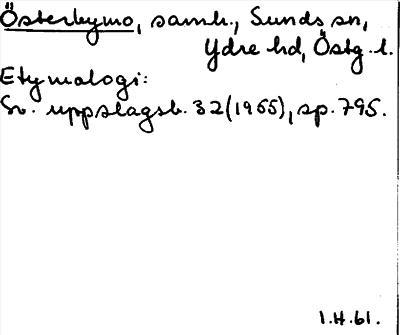 Österbymo, samh., Sunds sn,
Ydre hd, Östg. l.
Etymologi:
Sv. uppslagsb. 32 (1955), sp. 795.
1.H.61.